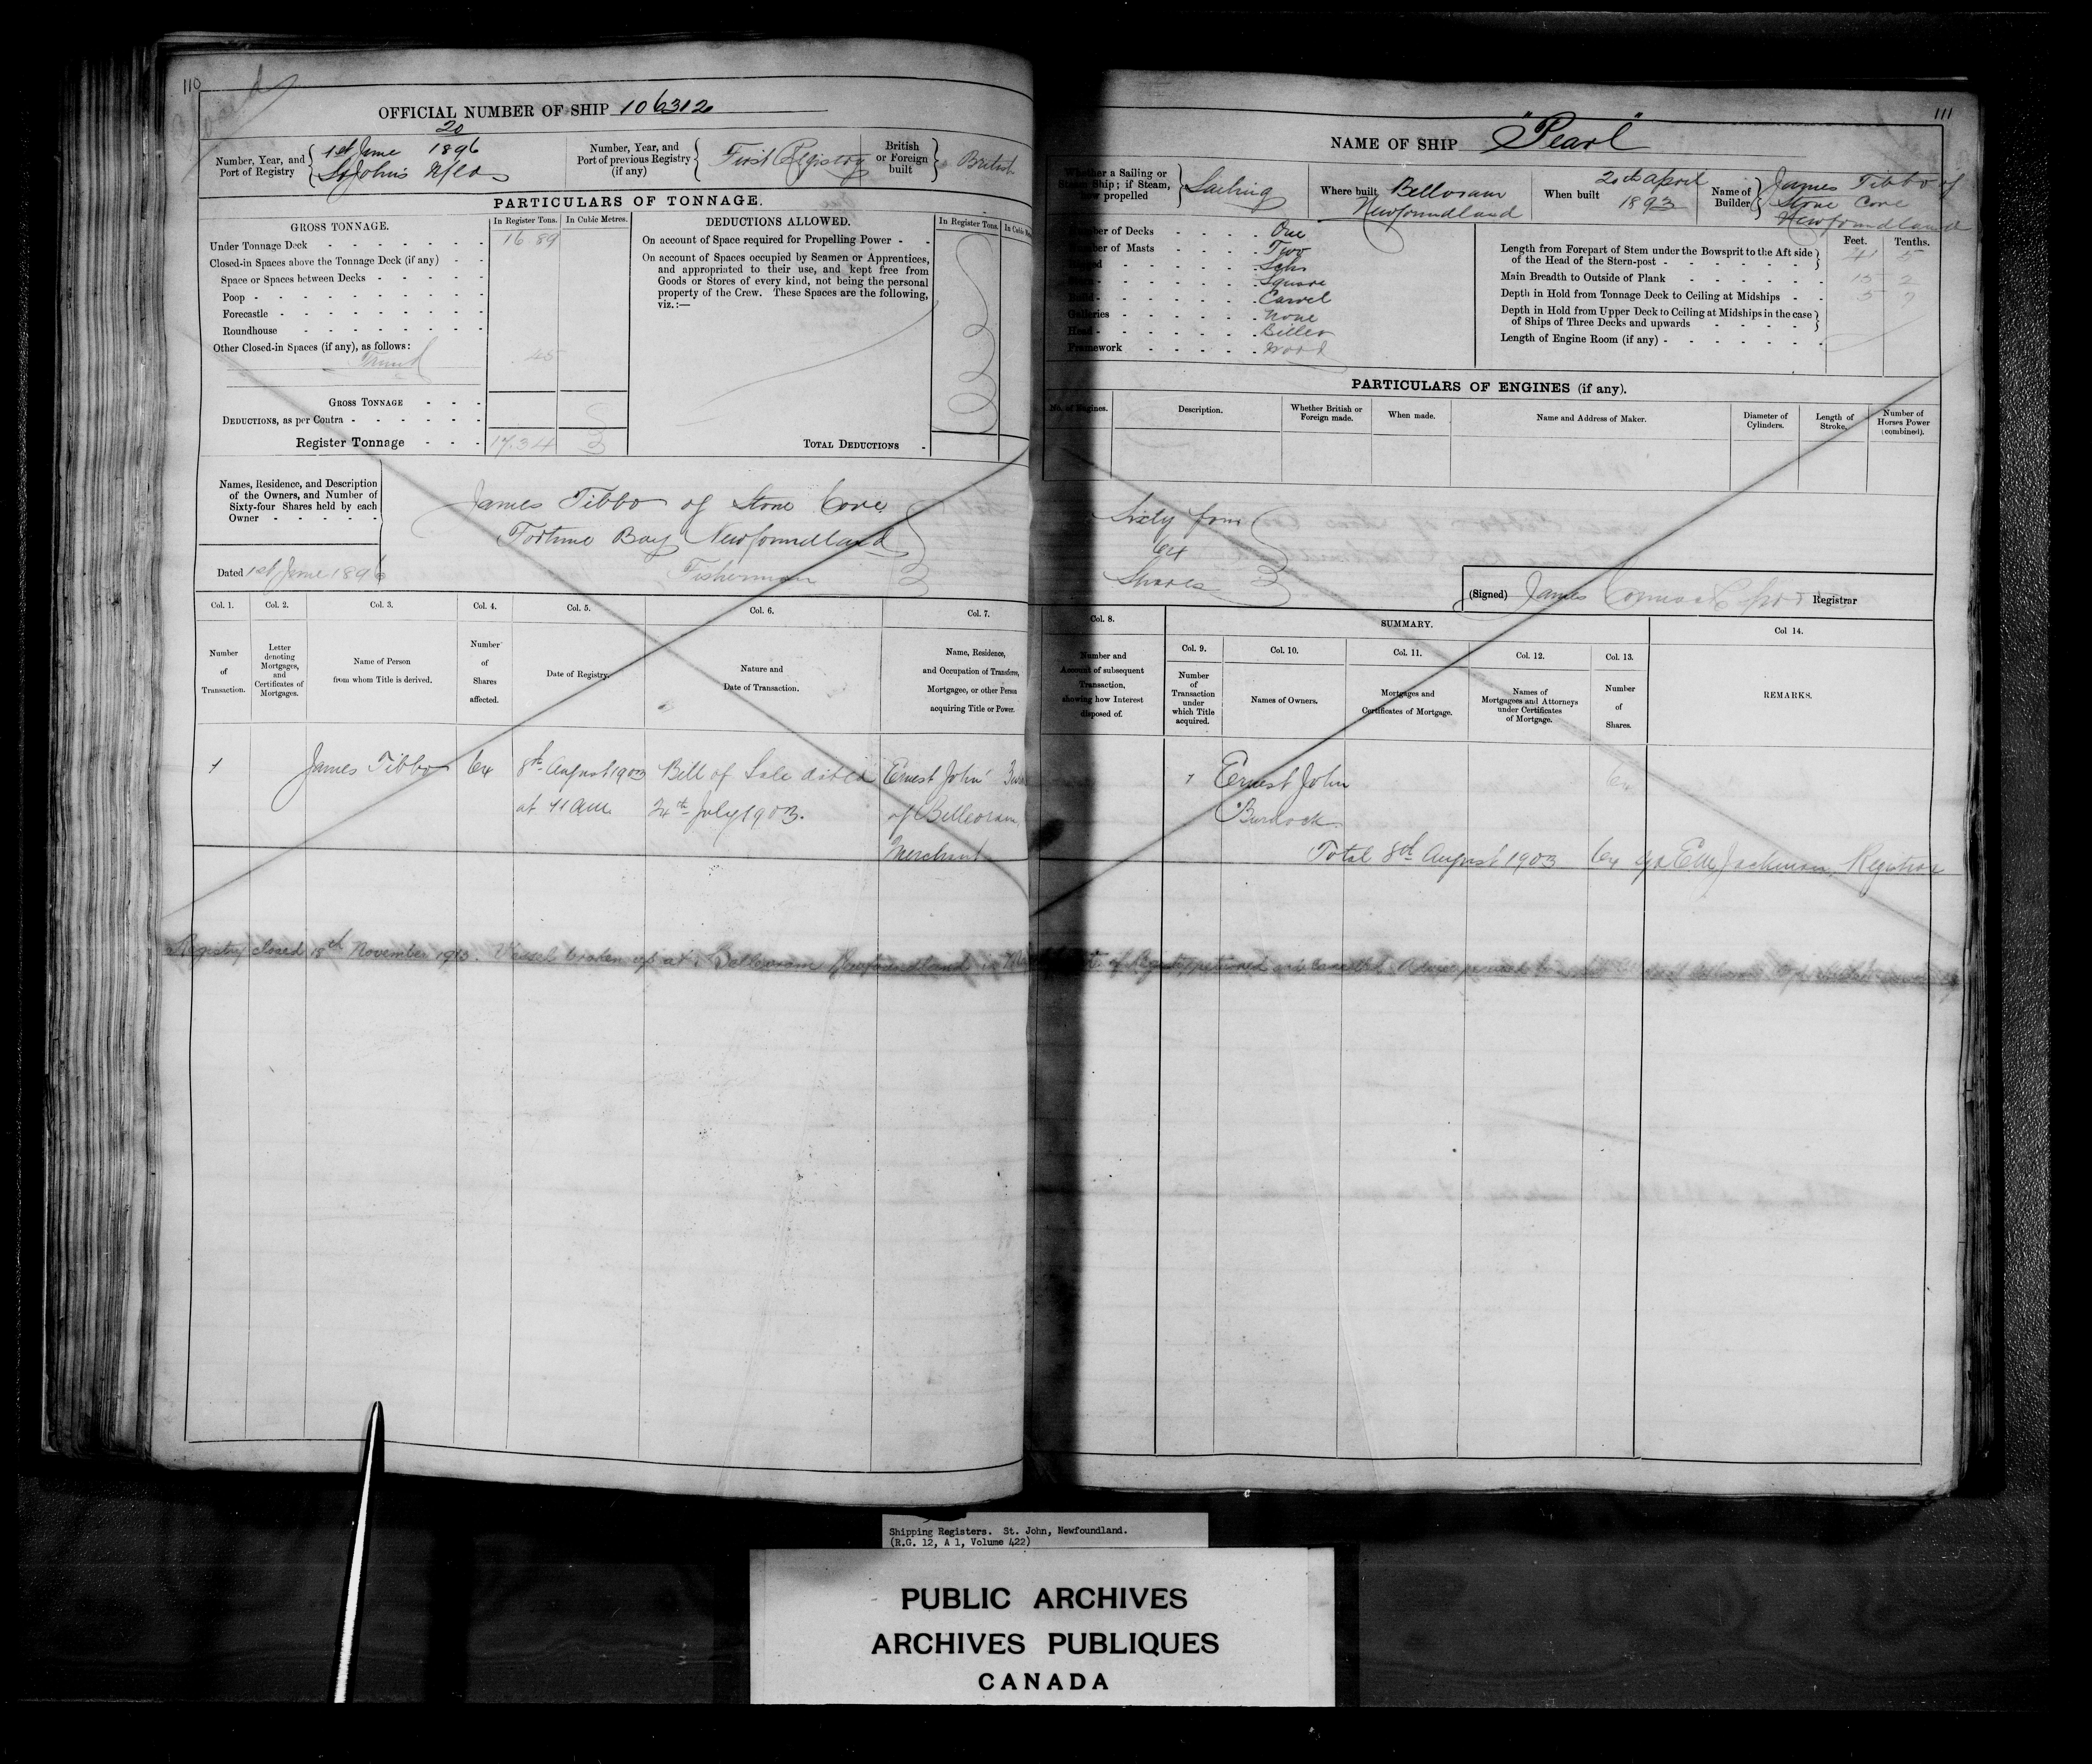 110
Closed
OFFICIAL NUMBER OF SHIP 106312
Number, Year, and Port of Registry
20
1st June 1896
St John's Nfld
Number, Year, and Port of previous Registry (if any)
First Registry
British or Foreign built
British
PARTICULARS OF TONNAGE.
GROSS TONNAGE.
In Register Tons.
In Cubic Metres.
Under Tonnage Deck 16 89
Closed-in Spaces above the Tonnage Deck (if any)
Space or Spaces between Decks
Poop
Forecastle
Roundhouse
Other Closed-in Spaces (if any), as follows:
Trunk .45
GROSS TONNAGE
DEDUCTIONS, as per Contra
Register Tonnage 17.34
DEDUCTIONS ALLOWED.
In Register Tons.
On account of Space required for Propelling Power
On account of Spaces occupied by Seamen or Apprentices,
and appropriated to their use, and kept free from
Goods or Stores of every kind, not being the personal
property of the Crew. These Spaces are the following,
viz.:—
TOTAL DEDUCTIONS
Names, Residence, and Description
of the Owners, and Number of
Sixty-four Shares held by each
Owner
James Tibbo of Stone Cove
Fortune Bay Newfoundland
Fisherman
Dated 1st June 1896
Col. 1.
Number of Transaction.
Col. 2.
Letter denoting Mortgages, and Certificates of Mortgages.
Col. 3.
Name of Person from whom Title is derived.
Col. 4.
Number of Shares affected.
Col. 5.
Date of Registry.
Col. 6.
Nature and Date of Transaction.
Col. 7.
Name, Residence, and Occupation of Transferee, Mortgagee, or other Person acquiring Title or Power.
1 James Tibbo 64 8th August 1903 Bill of Sale dated Ernest John
at 11 am 24th July 1903. of Belleoram
Merchant
Registry closed 18th November 1913. Vessel broken up at Belleoram Newfoundland,
111
NAME OF SHIP "Pearl"
Whether a Sailing or Steam Ship; if Steam, how propelled
Sailing
Where built
Belloram
Newfoundland
When built
20th April
1893
Name of Builder
James Tibbo of
Stone Cove
Newfoundland
Number of Decks One
Number of Masts Two
Rigged Schr
Stern Square
Build Carvel
Galleries None
Head Billet
Framework Wood
Feet.
Tenths.
Length from Forepart of Stem under the Bowsprit to the Aft side
of the Head of the Stern-post 41 5
Main Breadth to Outside of Plank 15 2
Depth in Hold from Tonnage Deck to Ceiling at Midships 5 7
Depth in Hold from Upper Deck to Ceiling at Midships in the case
of Ships of Three Decks and upwards
Length of Engine Room (if any)
PARTICULARS OF ENGINES (if any).
No. of Engines.
Description.
Whether British or Foreign made.
When made.
Name and Address of Maker.
Diameter of Cylinders.
Length of Stroke.
Number of Horses Power (combined).
Sixty four
64
Shares
(Signed) James Registrar
Col. 8.
Number and Account of subsequent Transaction, showing how Interest disposed of.
SUMMARY.
Col. 9.
Number of Transaction under which Title acquired.
Col. 10.
Names of Owners.
Col. 11.
Mortgages and Certificates of Mortgage.
Col. 12.
Names of Mortgagees and Attorneys under Certificates of Mortgage.
Col. 13.
Number of Shares.
Col 14.
REMARKS.
1 Ernest John 64
Burdock
Total 8th August 1903 64 Jackman Registrar
of Registry
Shipping Registers. St. John, Newfoundland.
(R.G. 12, A 1, Volume 422)
PUBLIC ARCHIVES
ARCHIVES PUBLIQUES
CANADA